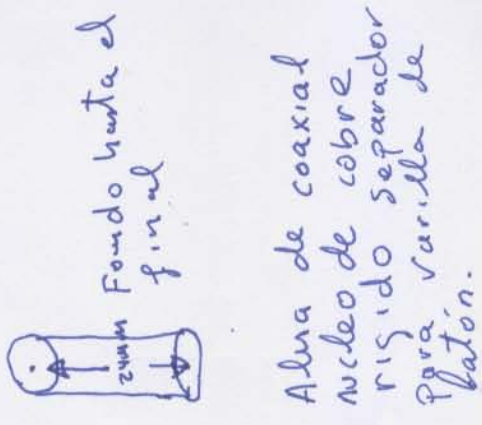 24mm
Fondo hasta el
final
Alma de coaxial
nucleo de cobre
rigido separador
Para varilla de
latón.